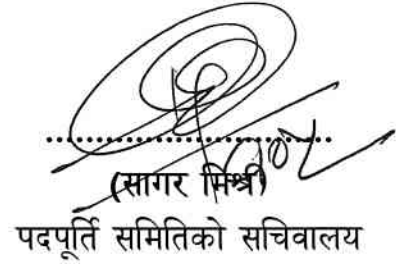 (सागर मिश्री)
पदपूर्ति समितिको सचिवालय